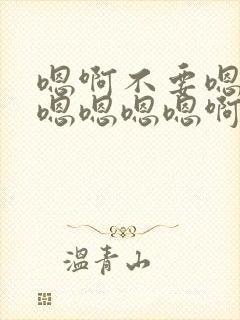 嗯啊不要嗯
嗯嗯嗯嗯啊
温青山